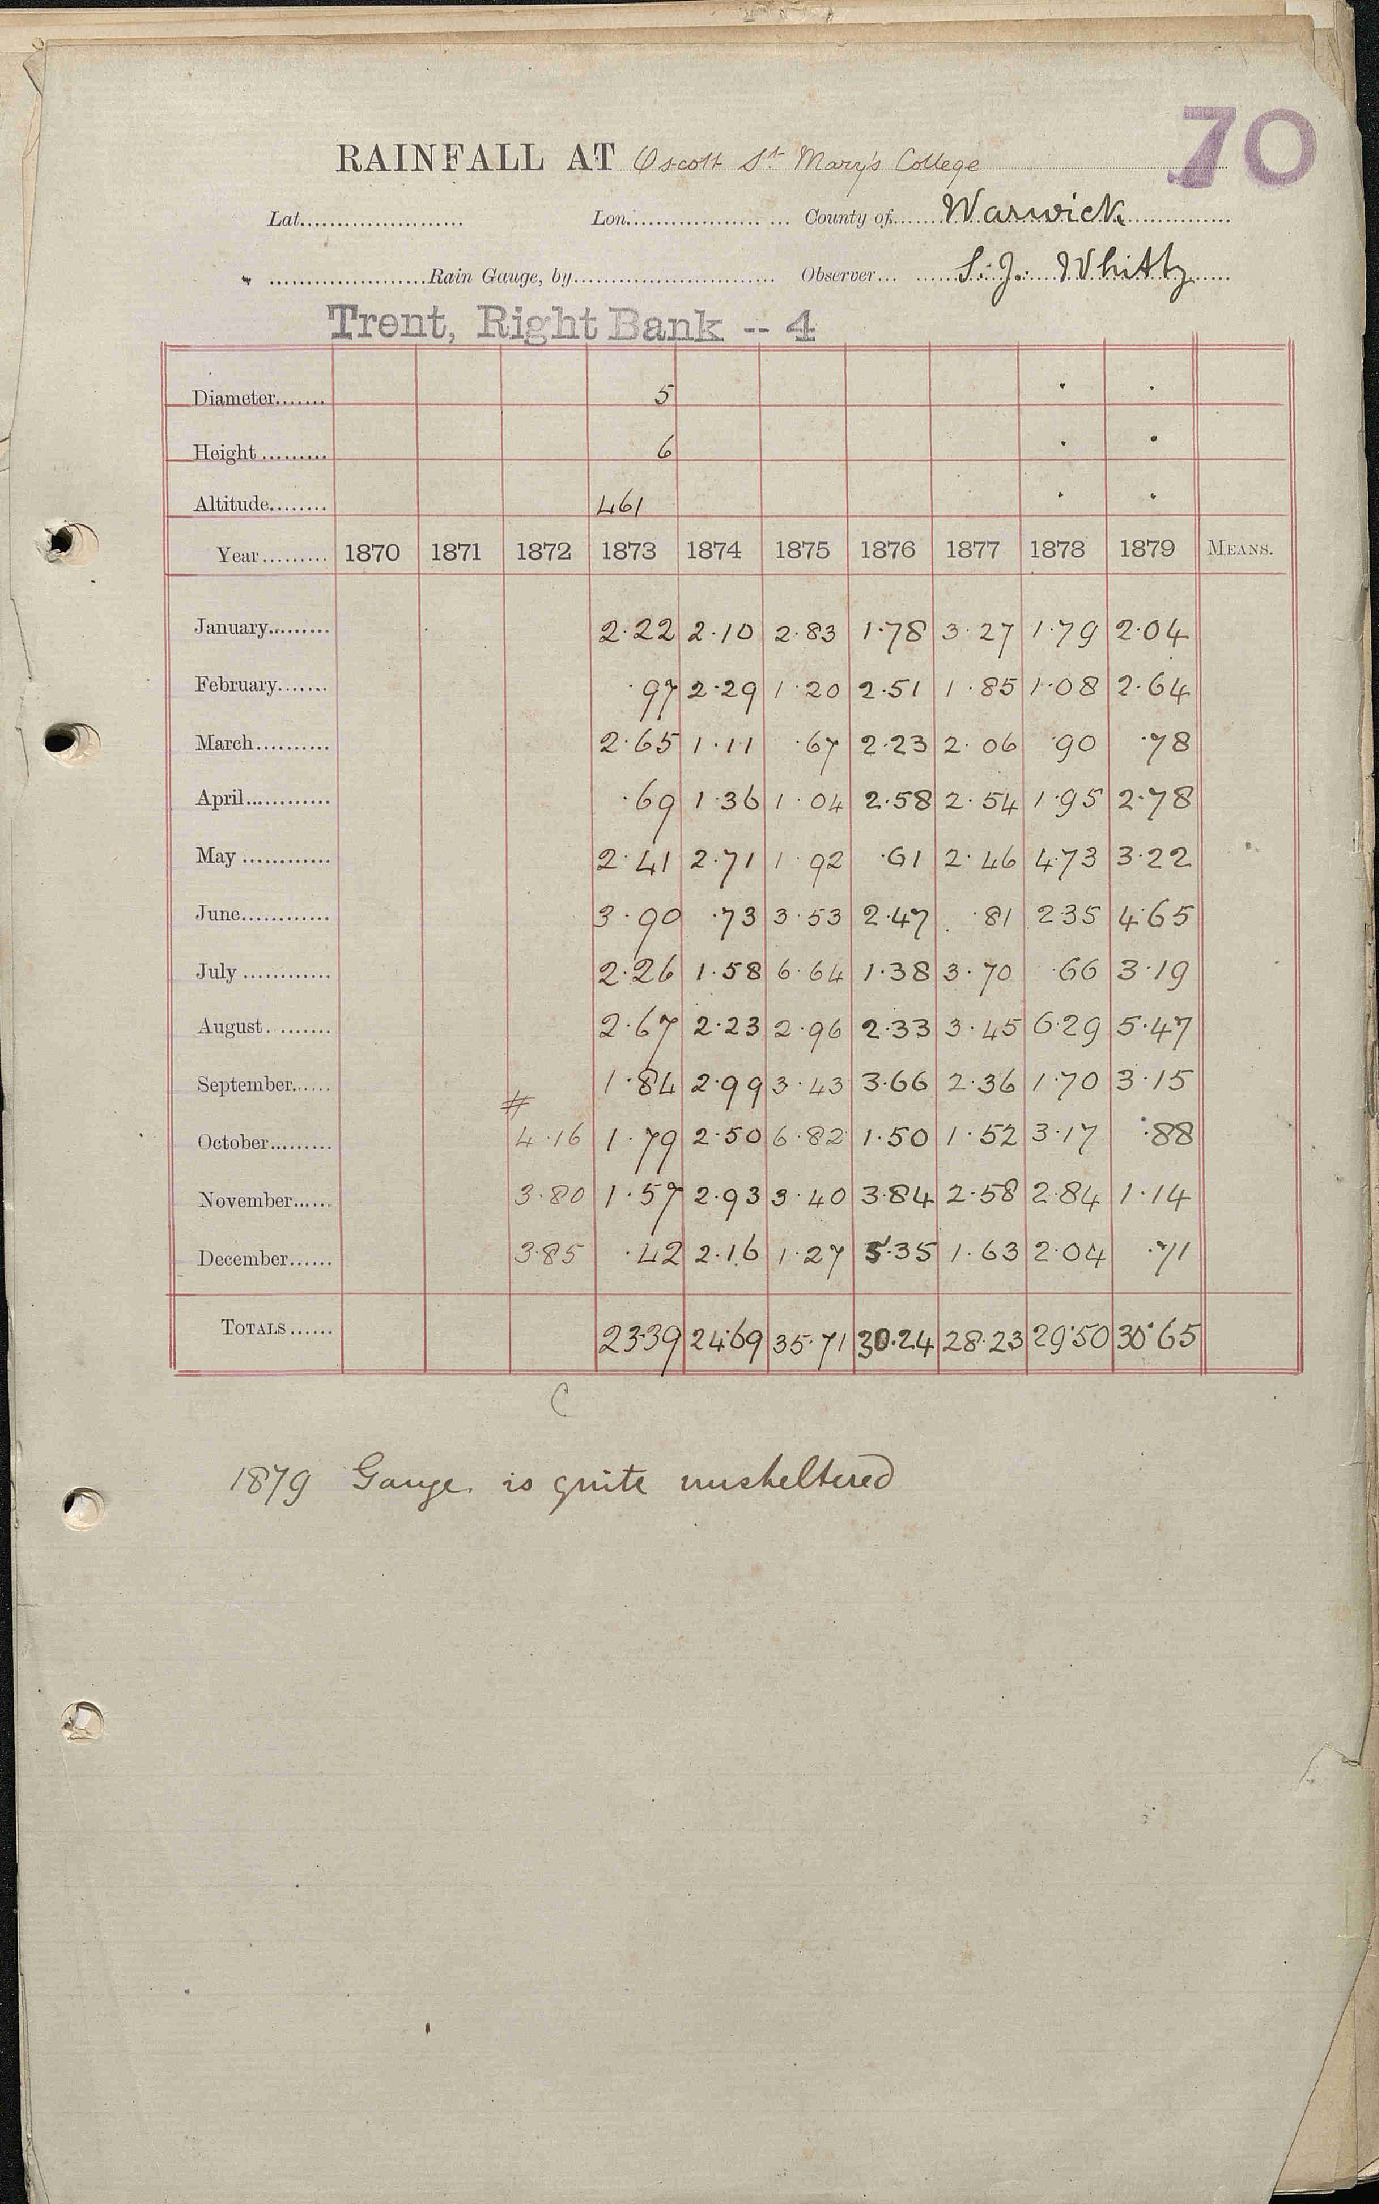 70
RAINFALL AT Oscott St Mary's College
Lat...................... Lon...................... County of...... Warwick
......................Rain Gauge, by........................... Observer... S. J. Whitty
Trent, Right Bank -- 4
Diameter....... 5 · ·
Height ......... 6 · ·
Altitude........ 461 · ·
Year......... 1870 1871 1872 1873 1874 1875 1876 1877 1878 1879 MEANS.
January......... 2·22 2·10 2·83 1·78 3·27 1·79 2·04
February....... ·97 2·29 1·20 2·51 1·85 1·08 2·64
March.......... 2·65 1·11 ·67 2·23 2·06 ·90 ·78
April............ ·69 1·36 1·04 2·58 2·54 1·95 2·78
May ............ 2·41 2·71 1·92 ·61 2·46 4·73 3·22
June............ 3·90 ·73 3·53 2·47 ·81 2·35 4·65
July ............ 2·26 1·58 6·64 1·38 3·70 ·66 3·19
August. ........ 2·67 2·23 2·96 2·33 3·45 6·29 5·47
September...... 1·84 2·99 3·43 3·66 2·36 1·70 3·15
#
October......... 4·16 1·79 2·50 6·82 1·50 1·52 3·17 ·88
November...... 3·80 1·57 2·93 3·40 3·84 2·58 2·84 1·14
December...... 3·85 ·42 2·16 1·27 5·35 1·63 2·04 ·71
TOTALS...... 23·39 24·69 35·71 30·24 28·23 29·50 30·65
C
1879 Gauge is quite unsheltered